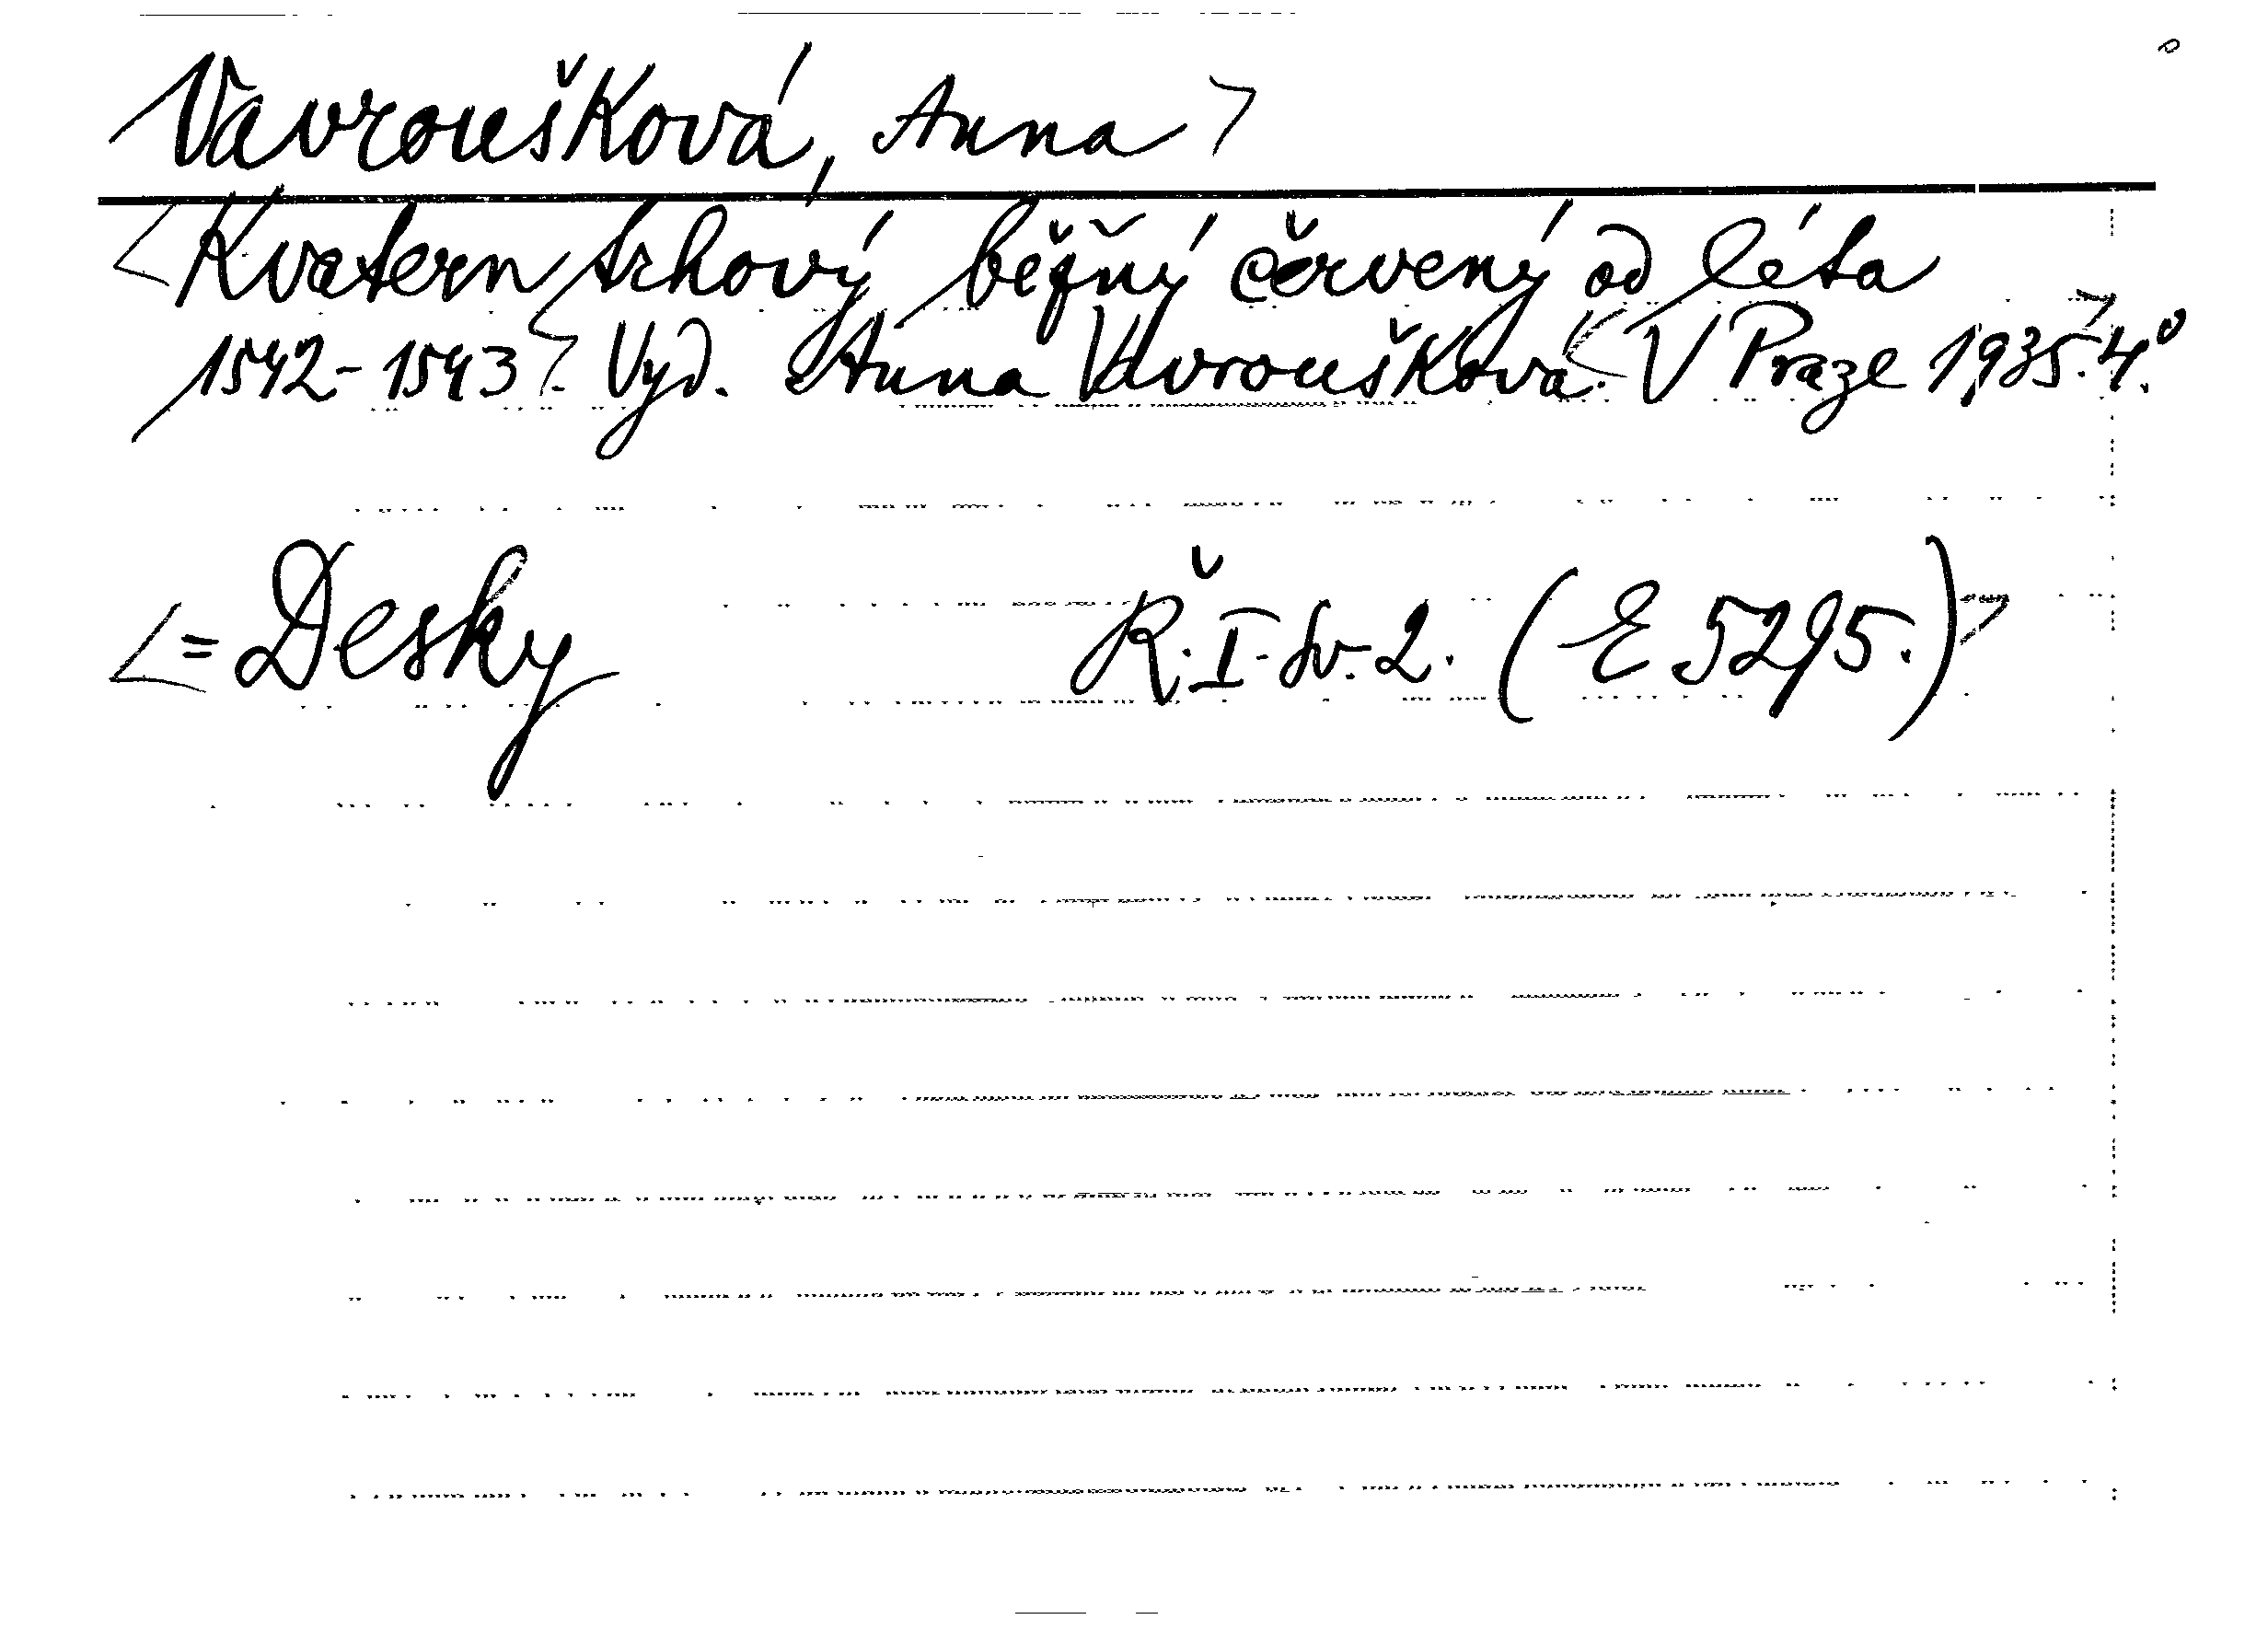 Vavroušková, Anna
Kvatern trhový běžný červený od léta
1542-1543. Vyd. Anna Vavroušková. V Praze 1935. 4.º
= Desky Ř. I. sv. 2. (E 5295.)